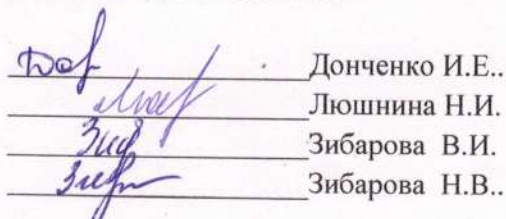 Донченко И.Е..
Люшнина Н.И.
Зибарова В.И.
Зибарова Н.В..